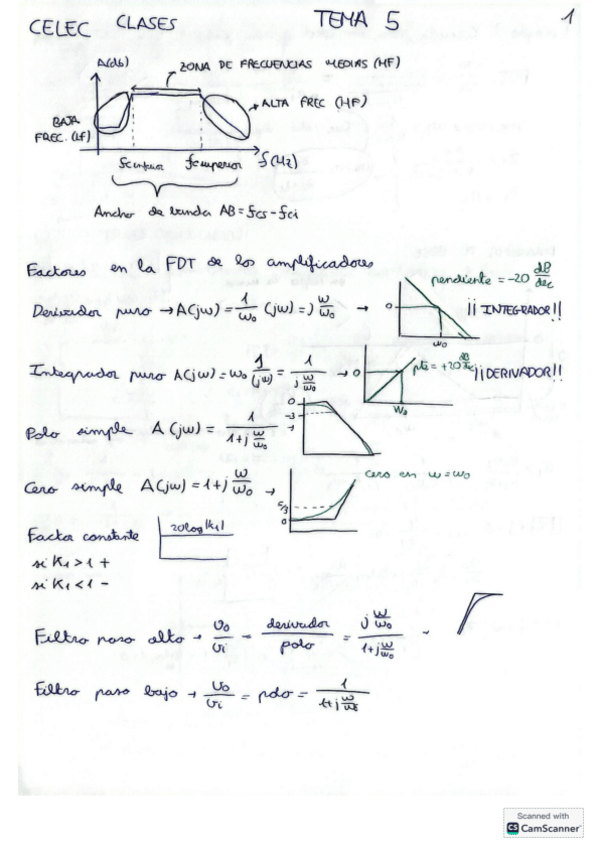 CELEC CLASES TEMA 5 1
A(db)
ZONA DE FRECUENCIAS MEDIAS (MF)
ALTA FREC (HF)
BAJA
FREC. (LF)
fc inferior fc superior f(Hz)
Ancho de banda AB = fcs - fci
Factores en la FDT de los amplificadores
pendiente = -20 dB/dec
Derivador puro → A(jw) = 1/w₀ (jw) = j w/w₀ → 0 w₀ ¡¡INTEGRADOR!!
Integrador puro A(jw) = w₀ 1/(jw) = 1/(j w/w₀) → 0 w₀ pte = +20 dB/dec ¡¡DERIVADOR!!
Polo simple A(jw) = 1/(1+j w/w₀) → 0 -3
Cero simple A(jw) = 1+j w/w₀ → 0 cero en w=w₀
Factor constante 20log|K₁|
si K₁ > 1 +
si K₁ < 1 -
Filtro paso alto → Vo/Vi = derivador/polo = (j w/w₀)/(1+j w/w₀) →
Filtro paso bajo → Vo/Vi = polo = 1/(1+j w/w₀)
Scanned with
CS CamScanner